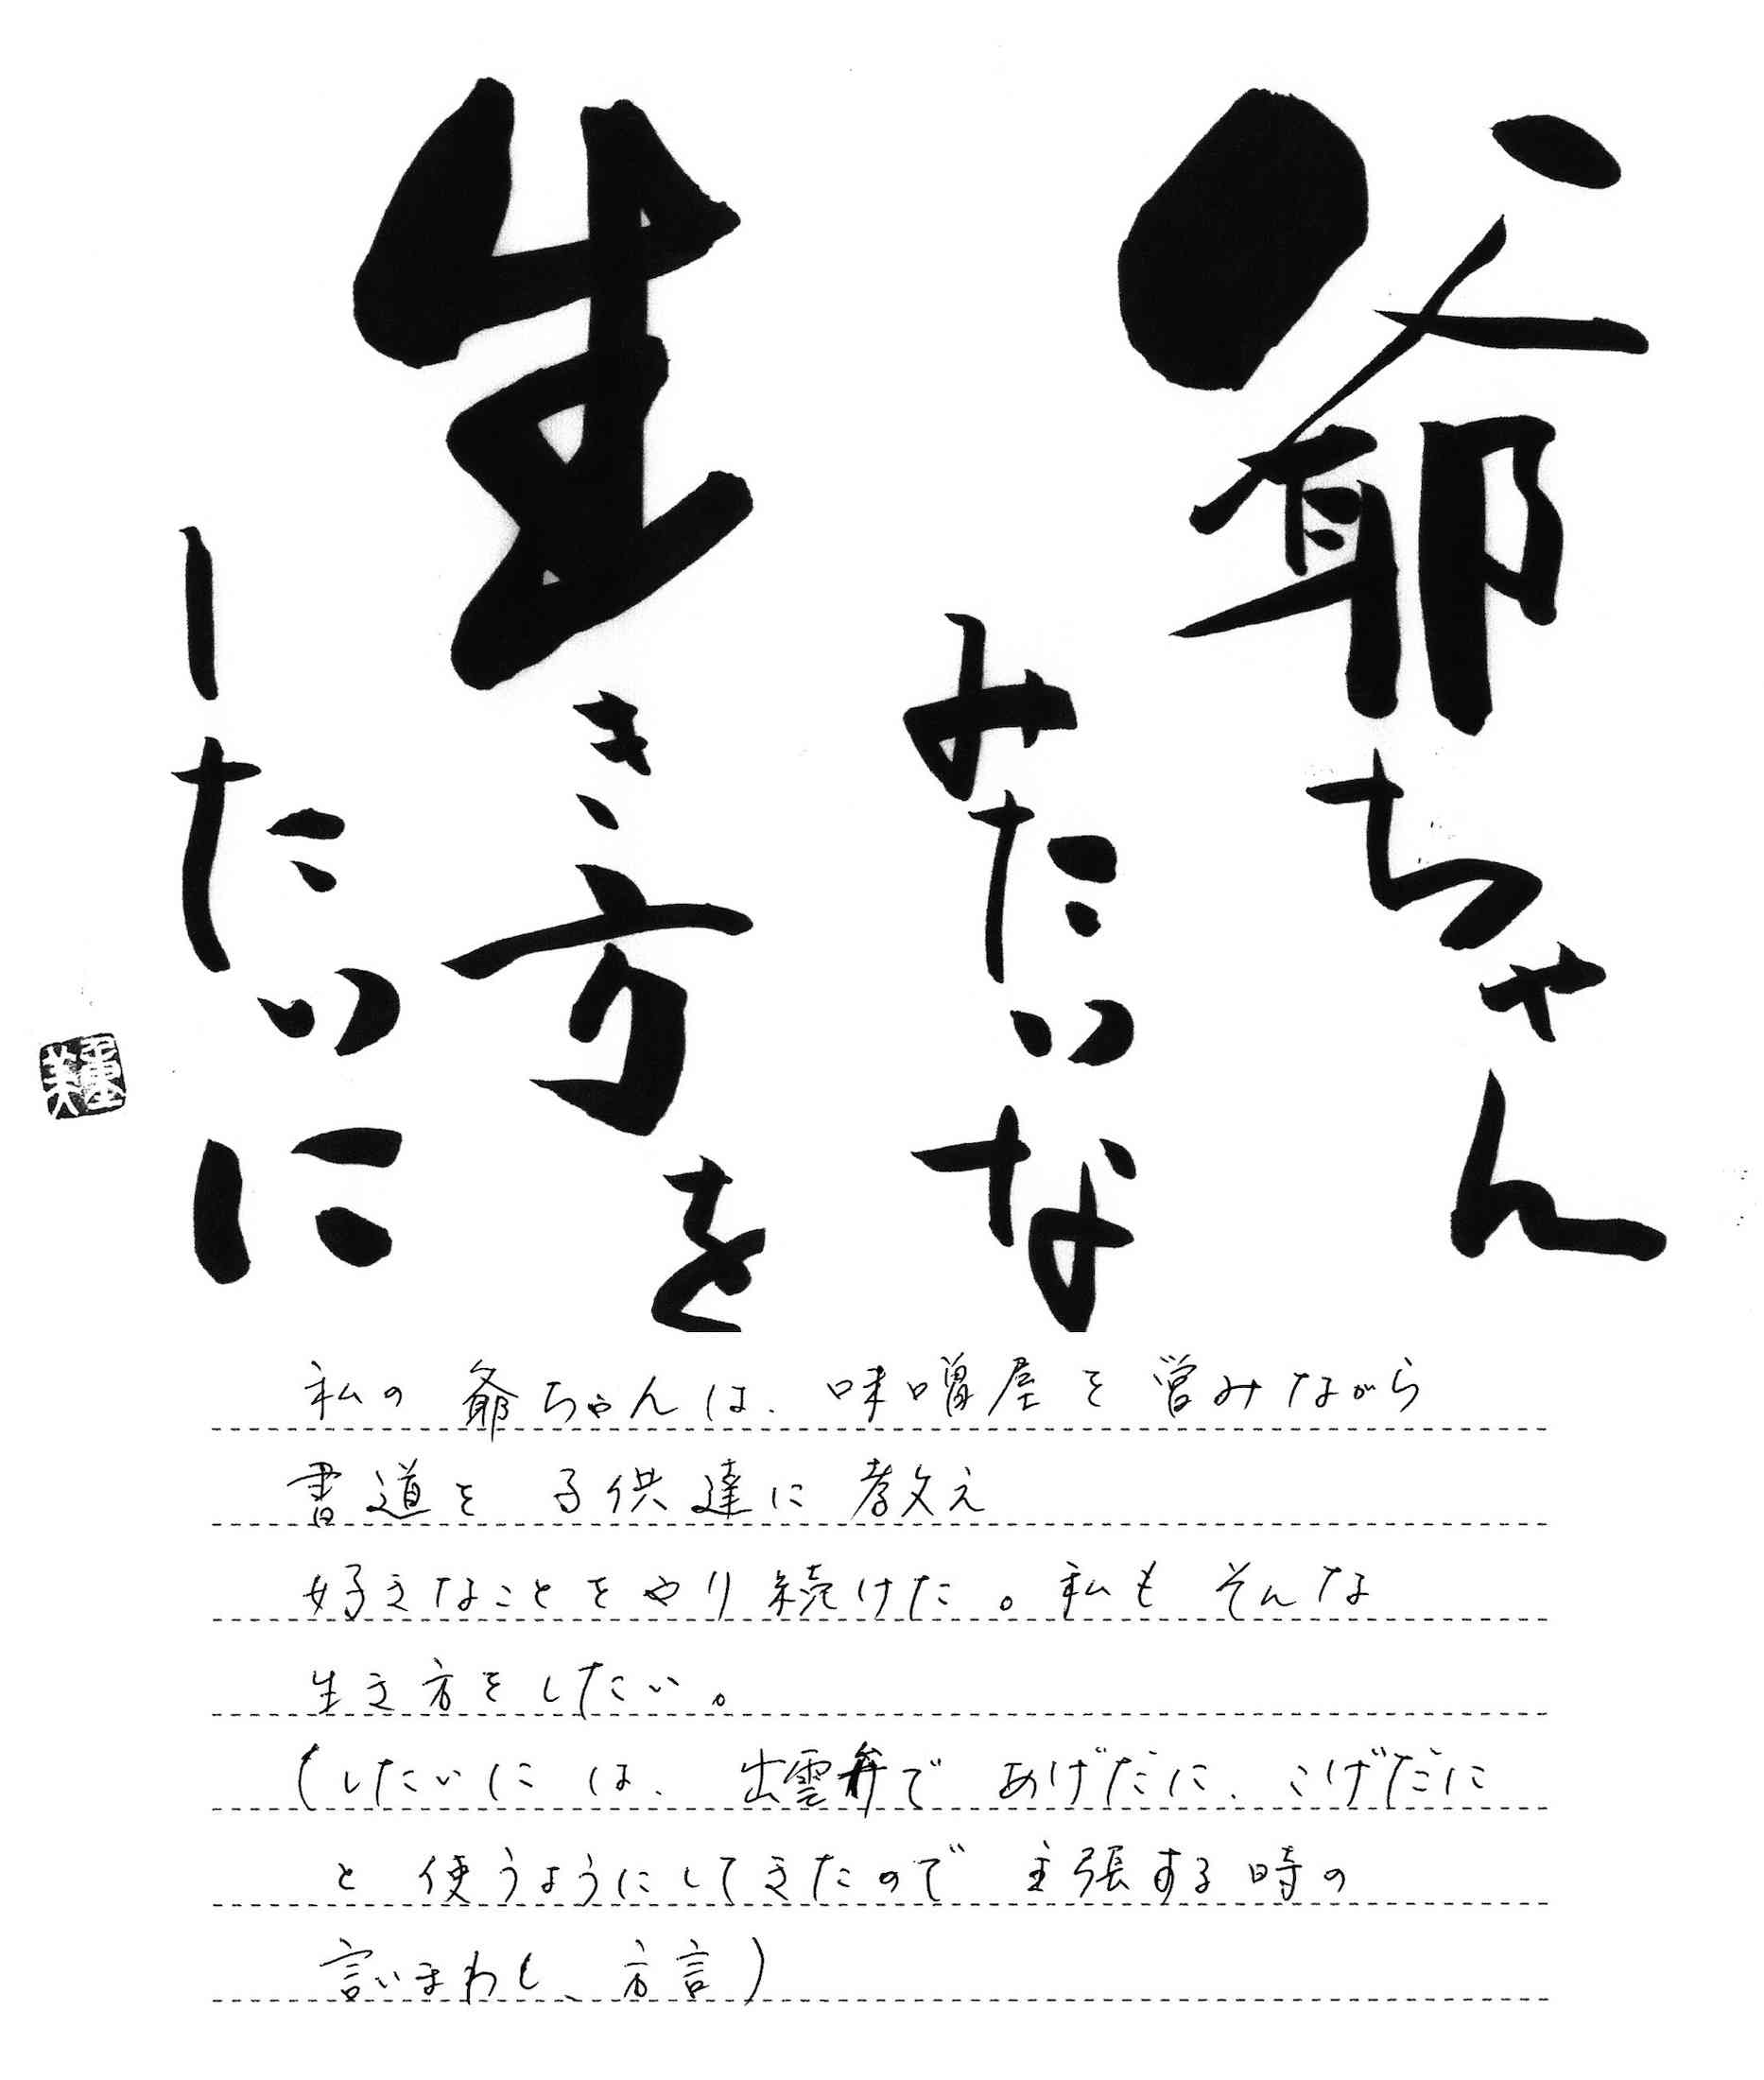 爺ちゃん
みたいな
生き方を
したいに
私の爺ちゃんは、味噌屋を営みながら
書道を子供達に教え
好きなことをやり続けた。私もそんな
生き方をしたい。
(したいには、出雲弁であげだに、こげだに
と使うようにしてきたので主張する時の
言いまわし、方言)